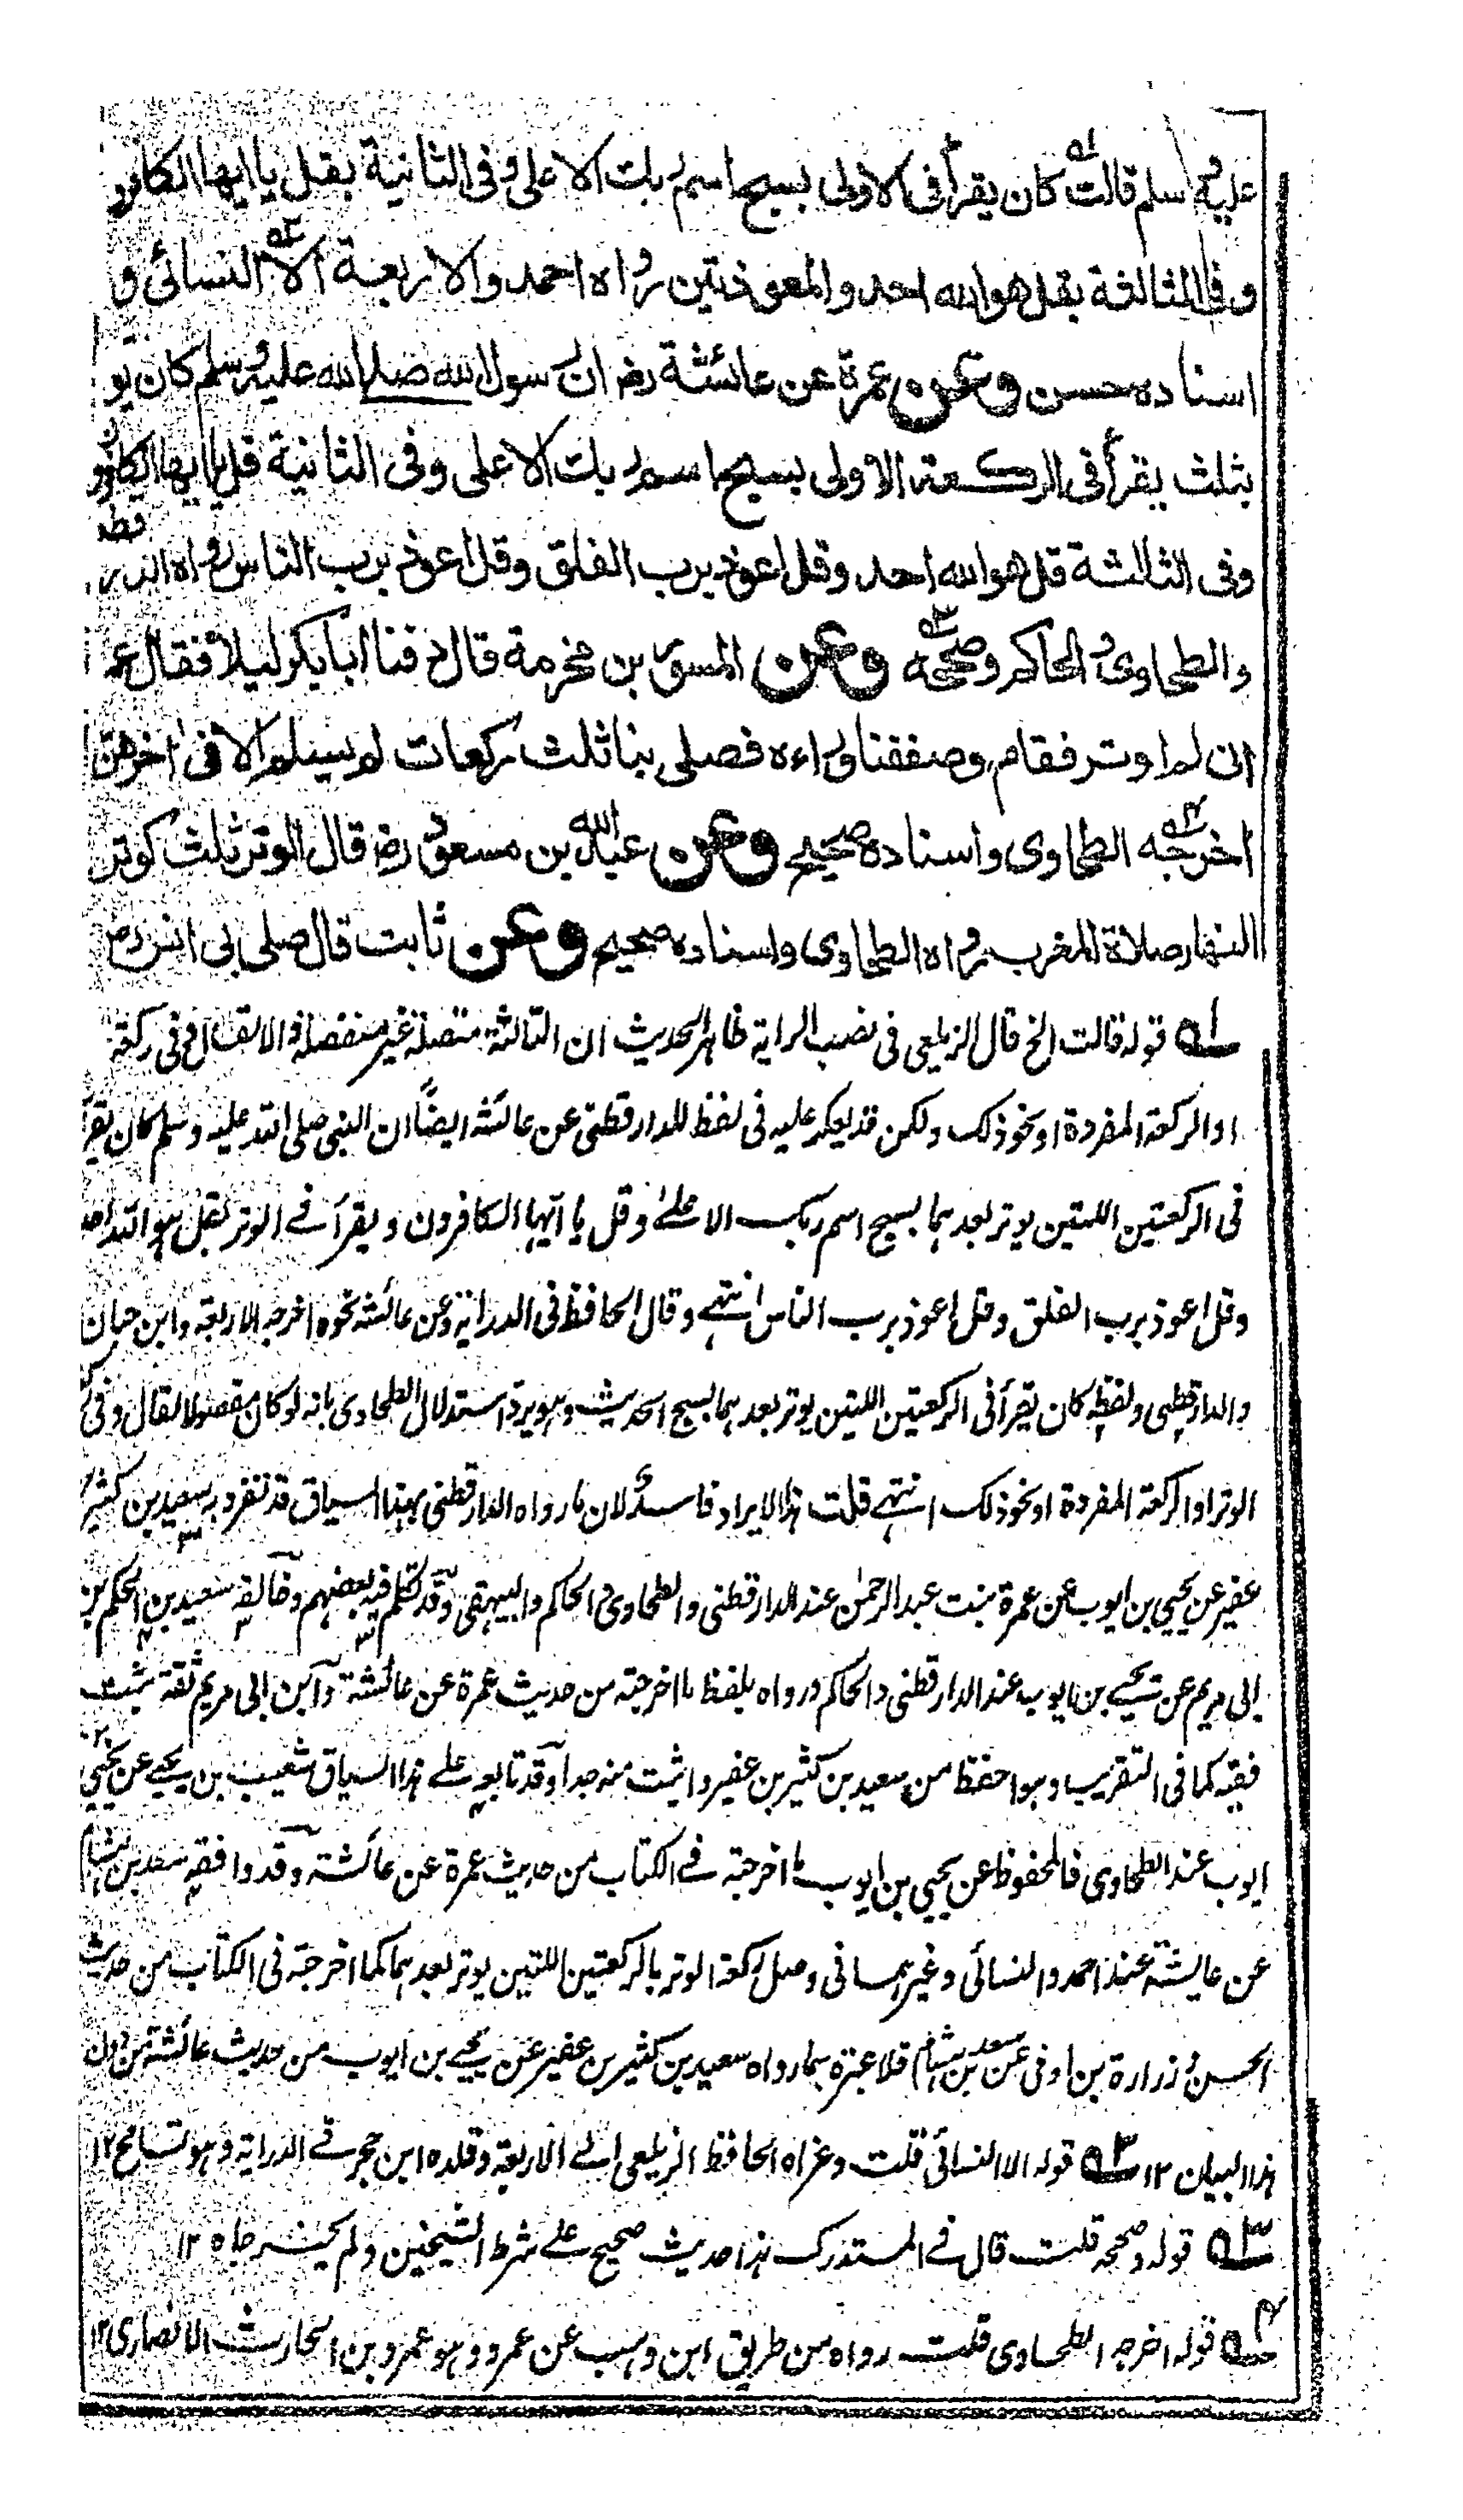 عليه وسلم قالت ؎۱ كان يقرأ فى الاولى بسبح اسم ربك الاعلى وفى الثانية بقل يا ايها الكافرون
وفى الثالثة بقل هو الله احد والمعوذتين رواه احمد والاربعة الا ؎۲ النسائى و
اسناده حسن وعن عمرة عن عائشة رض ان رسول الله صلى الله عليه وسلم كان يوتر
بثلث يقرأ فى الركعة الاولى بسبح اسم ربك الاعلى وفى الثانية قل يا ايها الكافرون
وفى الثالثة قل هو الله احد وقل اعوذ برب الفلق وقل اعوذ برب الناس رواه الدارقطنى
والطحاوى والحاكم وصححه ؎۳ وعن المسور بن مخرمة قال دفنا ابا بكر ليلا فقال عمر
انى لم اوتر فقام وصففنا وراءه فصلى بنا ثلث ركعات لم يسلم الا فى اخرهن
اخرجه ؎۴ الطحاوى واسناده صحيح وعن عبد الله بن مسعود رض قال الوتر ثلث كوتر
النهار صلاة المغرب رواه الطحاوى واسناده صحيح وعن ثابت قال صلى بى انس رض
؎۱ قوله قالت الخ قال الزيلعى فى نصب الراية ظاهر الحديث ان الثالثة متصلة غير منفصلة والا لقال وفى ركعة
او الركعة المفردة او نحو ذلك ولكن قد يعكر عليه فى لفظ للدارقطنى عن عائشة ايضًا ان النبى صلى الله عليه وسلم كان يقرأ
فى الركعتين اللتين يوتر بعدهما بسبح اسم ربك الاعلىٰ وقل يا ايها الكافرون ويقرأ فے الوتر بقل هو الله احد
وقل اعوذ برب الفلق وقل اعوذ برب الناس انتهے وقال الحافظ فى الدراية وعن عائشة نحوه اخرجه الاربعة وابن حبان
والدارقطنى ولفظه كان يقرأ فى الركعتين اللتين يوتر بعدهما بسبح الحديث وهو يرد استدلال الطحاوى بانه لو كان مفصولا لقال وفى ركعة
الوتر او الركعة المفردة او نحو ذلك انتهے قلت هذا الايراد فاسد لان ما رواه الدارقطنى بهذا السياق قد تفرد به سعيد بن كثير بن
عفير عن يحيى بن ايوب عن عمرة بنت عبد الرحمن عند الدارقطنى والطحاوى والحاكم والبيهقى وقد تكلم فيه بعضهم وخالفه سعيد بن الحكم بن
ابى مريم عن يحيے بن ايوب عند الدارقطنى والحاكم ورواه بلفظ ما اخرجته من حديث عمرة عن عائشة وابن ابى مريم ثقة ثبت
فقيه كما فى التقريب وهو احفظ من سعيد بن كثير بن عفير واثبت منه جدا وقد تابعه علے هذا السياق شعيب بن يحيے عن يحيى بن
ايوب عند الطحاوى فالمحفوظ عن يحيى بن ايوب ما اخرجته فے الكتاب من حديث عمرة عن عائشة وقد وافقه سعد بن هشام
عن عايشة عند احمد والنسائى وغيرهما فى وصل ركعة الوتر بالركعتين اللتين يوتر بعدهما كما اخرجته فى الكتاب من حديث
الحسن وزرارة بن اوفى عن سعد بن هشام فلا عبرة بما رواه سعيد بن كثير بن عفير عن يحيے بن ايوب من حديث عائشة من دون
هذا البيان ۱۲ ؎۲ قوله الا النسائى قلت وعزاه الحافظ الزيلعى الے الاربعة وقلده ابن حجر فے الدراية وهو تسامح ۱۲
؎۳ قوله وصححه قلت قال فے المستدرك هذا حديث صحيح علے شرط الشيخين ولم يخرجاه ۱۲
؎۴ قوله اخرجه الطحاوى قلت رواه من طريق ابن وهب عن عمرو وهو عمرو بن الحارث الانصارى ۱۲